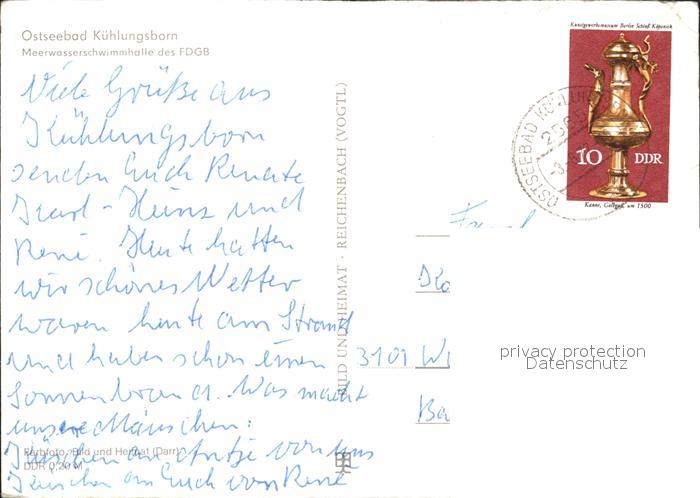 Ostseebad Kühlungsborn
Meerwasserschwimmhalle des FDGB
Viele Grüße aus
Kühlungsborn
senden Euch Renate
Karl-Heinz und
René. Heute hatten
wir schönes Wetter
waren heute am Strand
und haben schon einen
Sonnenbrand. Was macht
unsere Mäuschen:
an Antje von uns
an Euch von René
Farbfoto: Bild und Heimat (Darr)
DDR 0,20 M
BILD UND HEIMAT · REICHENBACH (VOGTL)
Kunstgewerbemuseum Berlin Schloß Köpenick
10 DDR
Kanne, Gelbguß, um 1500
OSTSEEBAD
2565
3101 Wi
Ba
privacy protection
Datenschutz